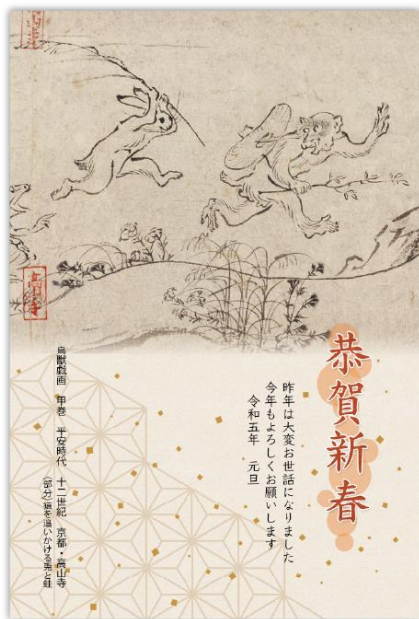 恭賀新春
昨年は大変お世話になりました
今年もよろしくお願いします
令和五年　元旦
鳥獣戯画　甲巻　平安時代　十二世紀　京都・高山寺
（部分）猿を追いかける兎と蛙
高山寺